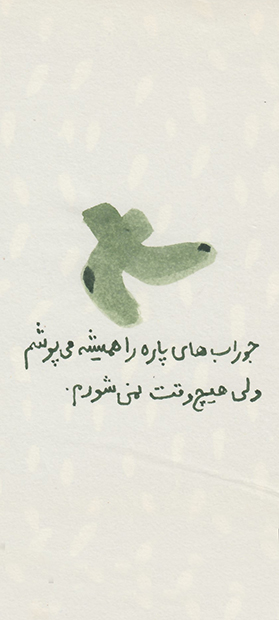 جوراب‌های پاره را همیشه می‌پوشم
ولی هیچ وقت نمی‌شورم.